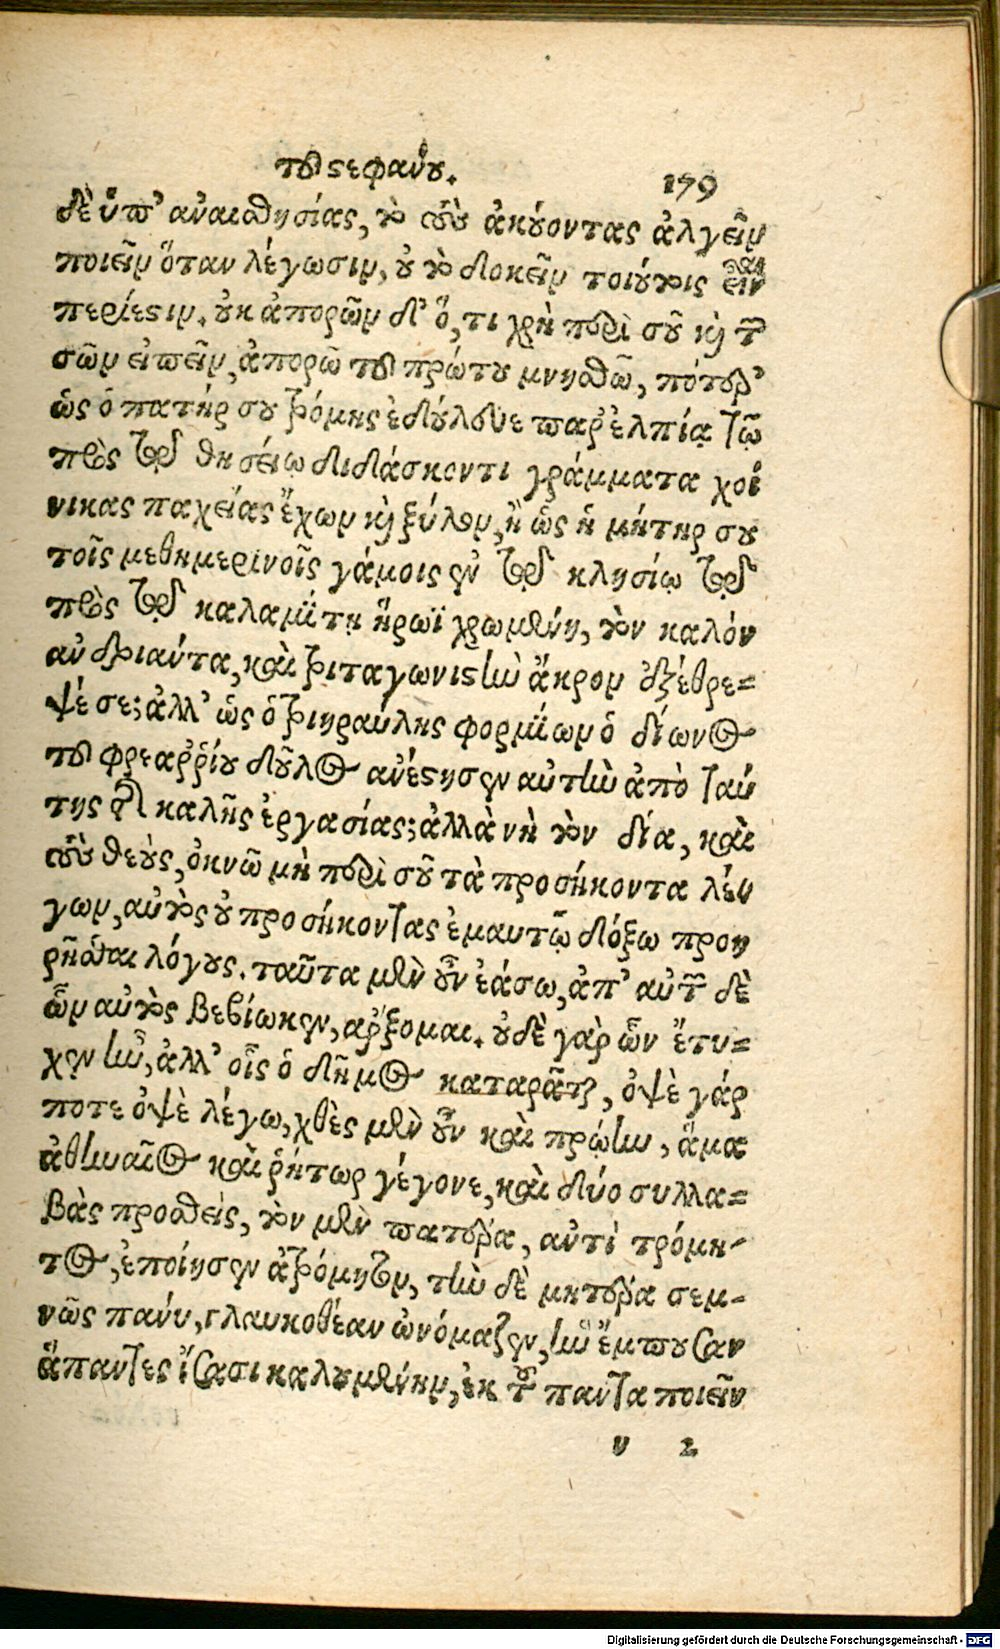 τοῦ στεφάνου.
179
δὲ ὑπ' ἀναισθησίας, τὸ τοὺς ἀκούοντας ἀλγεῖν
ποιεῖν ὅταν λέγωσιν, οὐ τὸ δοκεῖν τοιούτοις εἶναι
περίεστιν. οὐκ ἀπορῶν δ' ὅ, τι χρὴ περὶ σοῦ καὶ τῶν
σῶν εἰπεῖν, ἀπορῶ τοῦ πρώτου μνησθῶ, πότερ'
ὡς ὁ πατήρ σου τρόμης ἐδούλευε παρ' ἐλπίᾳ τῷ
πρὸς τῷ θησείῳ διδάσκοντι γράμματα χοί
νικας παχείας ἔχων καὶ ξύλον, ἢ ὡς ἡ μήτηρ σου
τοῖς μεθημερινοῖς γάμοις ἐν τῷ κλησίῳ τῷ
πρὸς τῷ καλαμίτῃ ἥρωϊ χρωμένη, τὸν καλὸν
ἀνδριάντα, καὶ τριταγωνιστὴν ἄκρον ἐξέθρε=
ψέ σε; ἀλλ' ὡς ὁ τριηραύλης φορμίων ὁ δίωνος
τοῦ φρεαρρίου δοῦλος ἀνέστησεν αὐτὴν ἀπὸ ταύ
της τῆς καλῆς ἐργασίας; ἀλλὰ νὴ τὸν δία, καὶ
τοὺς θεοὺς, ὀκνῶ μὴ περὶ σοῦ τὰ προσήκοντα λέ
γων, αὐτὸς οὐ προσήκοντας ἐμαυτῷ δόξω προη
ρῆσθαι λόγους. ταῦτα μὲν οὖν ἐάσω, ἀπ' αὐτῶν δὲ
ὧν αὐτὸς βεβίωκεν, ἄρξομαι. οὐδὲ γὰρ ὧν ἔτυ=
χεν ἦν, ἀλλ' οἷς ὁ δῆμος καταρᾶται, ὀψὲ γάρ
ποτε ὀψὲ λέγω, χθὲς μὲν οὖν καὶ πρώην, ἅμα
ἀθηναῖος καὶ ῥήτωρ γέγονε, καὶ δύο συλλα=
βὰς προσθεὶς, τὸν μὲν πατέρα, ἀντὶ τρόμη-
τος, ἐποίησεν ἀτρόμητον, τὴν δὲ μητέρα σεμ-
νῶς πάνυ, γλαυκοθέαν ὠνόμαζεν, ἣν ἔμπουσαν
ἅπαντες ἴσασι καλουμένην, ἐκ τοῦ πάντα ποιεῖν
υ 2
Digitalisierung gefördert durch die Deutsche Forschungsgemeinschaft - DFG